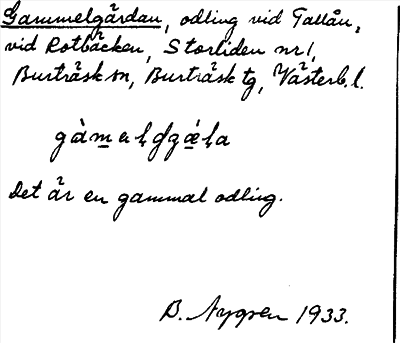 Gammelgårdan, odling vid Tallån,
vid Rotbäcken, Storliden nr 1,
Burträsk sn, Burträsk tg, Västerb. l.
Det är en gammal odling.
B. Nygren 1933.